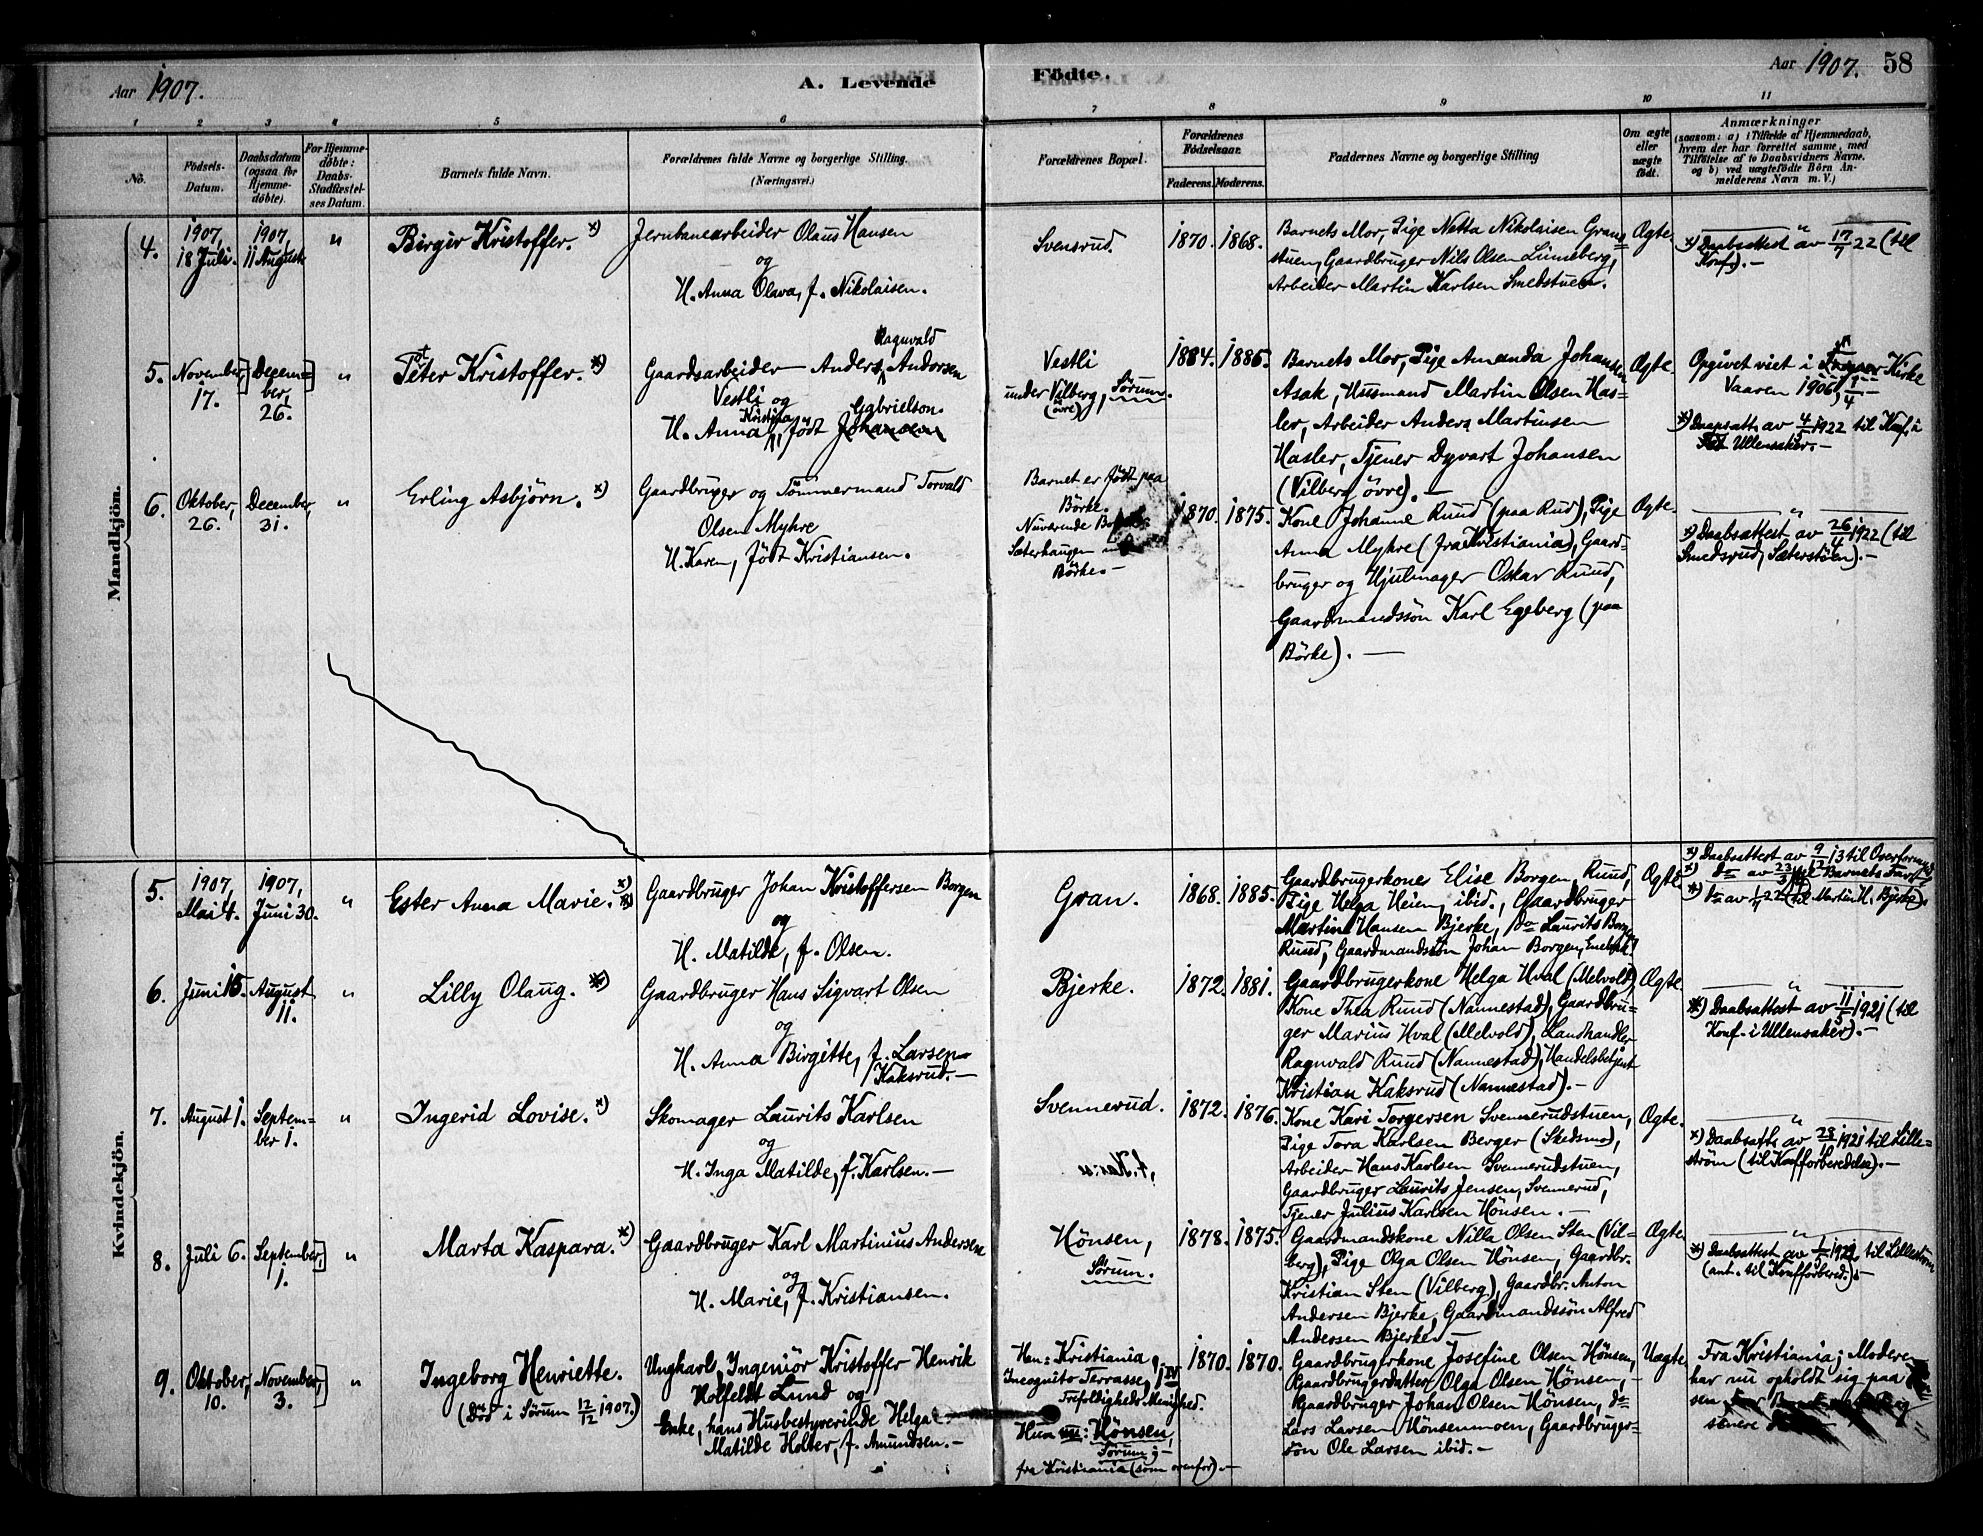 Aar 1907.
A. Levende
Födte.
Aar 1907. 58
1 2 3 4 5 6 7 8 9 10 11
No.
Födsels-
Datum.
Daabsdatum
(ogsaa for
Hjemme-
döbte).
For Hjemme-
döbte:
Daabs-
Stadfæstel-
ses Datum.
Barnets fulde Navn.
Forældrenes fulde Navne og borgerlige Stilling.
(Næringsvei.)
Forældrenes Bopæl.
Forældrenes
Födselsaar.
Faderens. Moderens.
Faddernes Navne og borgerlige Stilling
Om ægte
eller
uægte
födt.
Anmærkninger
(saasom: a) i Tilfælde af Hjemmedaab,
hvem der har forrettet samme, med
Tilföielse af to Daabsvidners Navne,
og b) ved uægtefödte Börn An-
melderens Navn m. V.)
Mandkjön.
4.
1907,
18 Juli.
1907,
11 August
"
Birgir Kristoffer. x)
Jernbanearbeider Olaus Hansen
og
H. Anna Olava, f. Nikolaisen.
Svensrud.
1870. 1868.
Barnets Mor, Pige Netta Nikolaisen Gran=
stuen, Gaardbruger Nils Olsen Lünneberg,
Arbeider Martin Karlsen Smedstuen.
Ægte
"
x) Daabsattest av 17/7 22 (til
Konf.). —
5.
November,
17.
Decem=
ber,
26.
"
Peter Kristoffer. x)
Ragnvald
Gaardsarbeider — Anders Andersen
Vestli og
Kristina Gabrielson
H. Anna, födt Johansen
Vestli
under Vilberg, Sørum.
(övre)
1884. 1886.
Barnets Mor, Pige Amanda Johansen
Asak, Husmand Martin Olsen Has=
ler, Arbeider Anders Martinsen
Hasler, Tjener Dyvart Johansen
(Vilberg övre). —
Ægte
Opgivet viet i Kirke
Vaaren 1906,
x) Daapsatt. av 4/ 1922 til Konf. i
Ullensaker. —
6.
Oktober,
26.
December,
31.
"
Erling Asbjörn. x)
Gaardbruger og Tömmermand Torvald
Olsen Myhre
H. Karen, födt Kristiansen.
Barnet er födt paa
Börke.
Nuværende
Sæterhaugen
Börke. —
1870. 1875.
Kone Johanne Ruud (paa Rud), Pige
Anna Myhre (fra Kristiania), Gaard-
bruger og Hjulmager Oskar Ruud,
Gaardmandssön Karl Egeberg (paa
Börke). —
Ægte.
"
x) Daabsattest av 26/4 1922 (til
Smedsrud, Sæterstöen). —
Kvindekjön.
5.
1907,
Mai 4.
1907,
Juni 30.
"
Ester Anna Marie. x)
Gaardbruger Johan Kristoffersen Borgen
og
H. Matilde, f. Olsen.
Gran.
1868. 1885.
Gaardbrugerkones Elise Borgen, Ruud,
Pige Helga Heien, ibid., Gaardbruger
Martin Hansen Bjerke, do Laurits Borgen
Ruud, Gaardmandssön Johan Borgen,
Ægte
x) Daabsattest av 9/12 13 til
x) do av 23/3 Barnets Far
x) do av 22 (til Martin H. Bjerke).
6.
Juni 15.
August
11.
"
Lilly Olaug. x)
Gaardbruger Hans Sigvart Olsen
og
H. Anna Birgitte, f. Larsen
Kaksrud. —
Bjerke.
1872. 1881.
Gaardbrugerkone Helga Hval (Melvold),
Kone Thea Ruud (Nannestad), Gaardbru=
ger Marius Hval (Melvold), Landhandler
Ragnvald Ruud (Nannestad), Handelsbetjent
Kristian Kaksrud (Nannestad). —
Ægte.
"
x) Daabsattest av 11/ 1921 (til
Konf. i Ullensaker). —
7.
August 1.
Septem=
ber 1.
"
Ingerid Lovise. x)
Skomager Laurits Karlsen
og
H. Inga Matilde, f. Karlsen. —
Svennerud.
1872. 1876.
Kone Kari Torgersen Svennerudstuen,
Pige Tora Karlsen Berger (Skedsmo),
Arbeider Hans Karlsen Svennerudstuen,
Gaardbruger Laurits Jensen, Svennerud,
Tjener Julius Karlsen Hönsen. —
Ægte.
"
x) Daabsatt. av 28/ 1921 til Lille=
ström (til Konfforberedelse). —
8.
Juli 6.
September,
1.
"
Marta Kaspara. x)
Gaardbruger Karl Martinius Andersen
og
H. Marie, f. Kristiansen.
Hönsen,
Sörum.
1878. 1875.
Gaardmandskone Nilla Olsen Sten (Vil-
berg), Pige Olga Olsen Hönsen, Gaardbr.
Kristian Sten (Vilberg), Gaardbr. Anton
Andersen Bjerke, Gaardmandssön Alfred
Andersen Bjerke.
Ægte
"
x) Daabsattest av 1921 til Lilleström
(ant. til Konfforbered.). —
9.
Oktober,
10.
November,
3.
"
Ingeborg Henriette.
(Död i Sörum 12/12 1907.)
Ungkarl, Ingeniör Kristoffer Henrik
Holfeldt Lund og
Enke, hans Husbestyrerinde Helga
Matilde Holter, f. Amundsen. —
Han: Kristiania,
Incognito Terrasse, IV
Trefoldigheds Menighed.
Hun nu: Hönsen,
Sörum; —
fra Kristiania (som ovenfor). —
1870. 1870.
Gaardbrugerkone Josefine Olsen Hönsen,
Gaardbrugerdatter Olga Olsen Hönsen, —
Gaardbruger Johan Olsen Hönsen, do
Lars Larsen Hönsenmoen, Gaardbruger-
sön Ole Larsen ibid. —
Uægte
Fra Kristiania; Modere
har nu opholdt sig paa